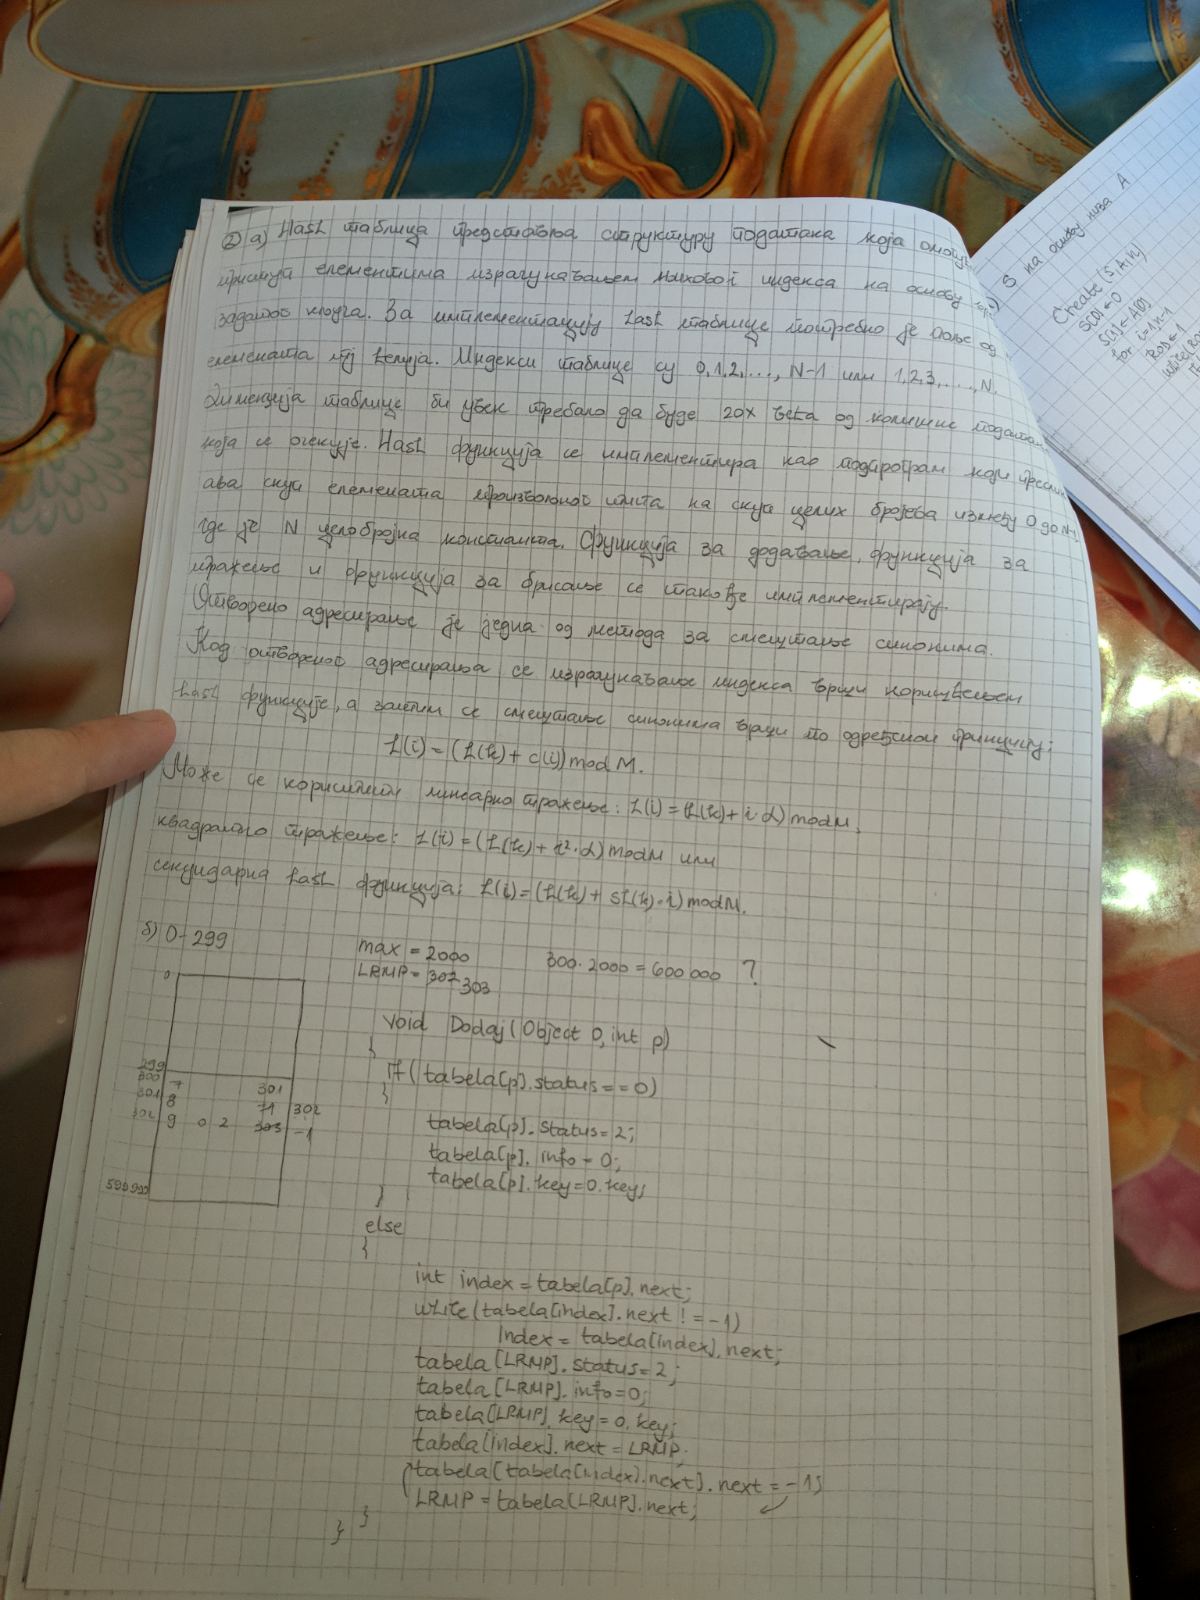 ② а) Hash таблица представља структуру података која омогућ
приступ елементима израчунавањем њиховог индекса на основу
задатог кључа. За имплементацију hash таблице потребно је поље од
елемената тј ћелија. Индекси таблице су 0,1,2,...,N-1 или 1,2,3,...,N.
Димензија таблице би увек требало да буде 20% већа од количине податак
која се очекује. Hash функција се имплементира као подпрограм који преслик
ава скуп елемената произвољног типа на скуп целих бројева између 0 до N-1,
где је N целобројна константа. Функција за додавање, функција за
тражење и функција за брисање се такође имплементирају.
Отворено адресирање је једна од метода за смештање синонима.
Код отвореног адресирања се израчунавање индекса врши коришћењем
hash функције, а затим се смештање синонима врши по одређеном принципу:
h(i) = (h(k) + c(i)) mod M.
Може се користити линеарно тражење: h(i) = (h(k) + i·α) mod M,
квадратно тражење: h(i) = (h(k) + i²·α) mod M или
секундарна hash функција: h(i) = (h(k) + sh(k)·i) mod M.
б) 0-299
max = 2000 300·2000 = 600 000 ?
LRMP = 302 303
0
299
300 7 301
301 8 71 302
302 9 0 2 303 -1
599999
void Dodaj (Object O, int p)
{
if (tabela[p].status == 0)
{
tabela[p].status = 2;
tabela[p].info = O;
tabela[p].key = O.key;
}
else
{
int index = tabela[p].next;
while (tabela[index].next != -1)
index = tabela[index].next;
tabela[LRMP].status = 2;
tabela[LRMP].info = O;
tabela[LRMP].key = O.key;
tabela[index].next = LRMP;
tabela[tabela[index].next].next = -1;
LRMP = tabela[LRMP].next;
}
}
S на основу низа A
Create (S,A,n)
S[0] ← 0
S[1] ← A[0]
for i=1,n-1